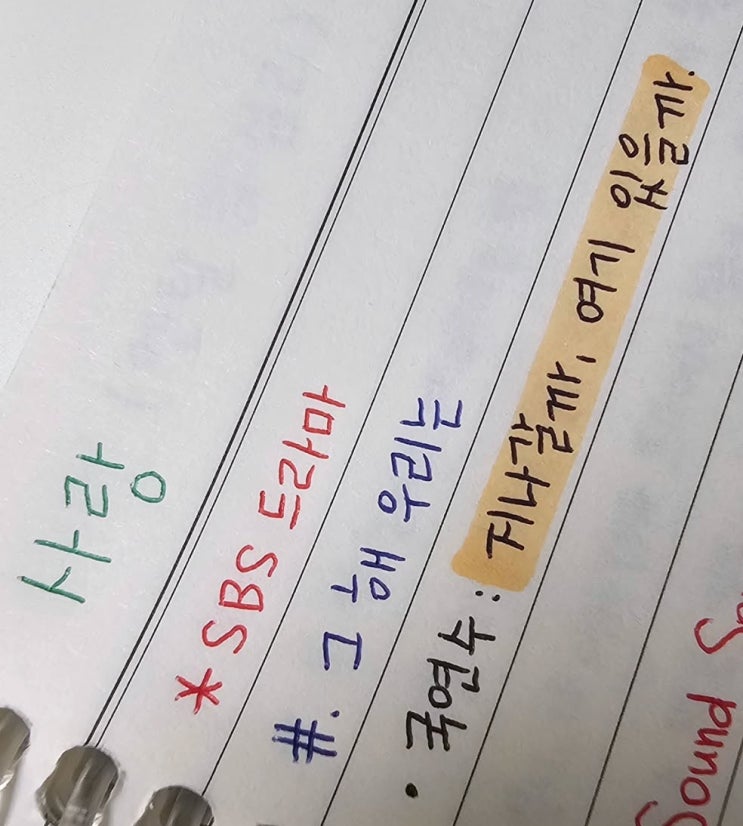 사랑
* SBS 드라마
#. 그 해 우리는
· 국연수 : 지나갈까, 여기 있을까.
Sound